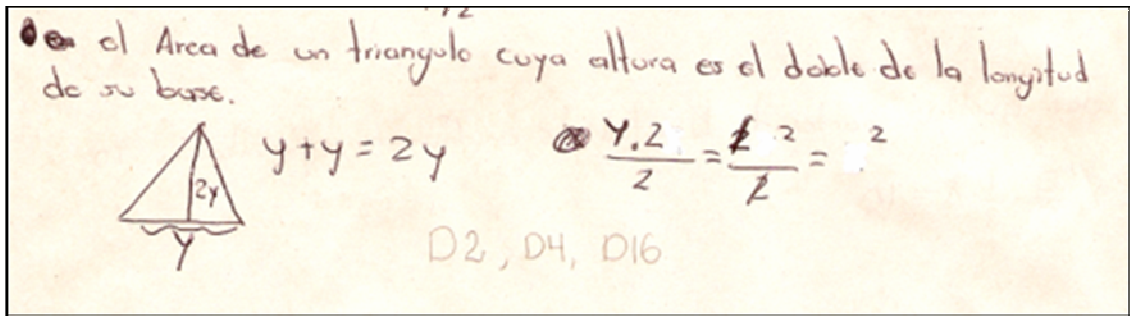 el Area de un triangulo cuya altura es el doble de la longitud
de su base.
y+y=2y
Y.2/2 = 2 2/2 = 2
2y
Y
D2, D4, D16